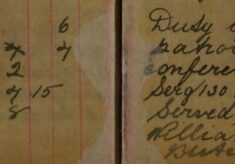 6
4 4
2
4 15
8
Duty
patrol
confere
Serg 130
Served
Willia